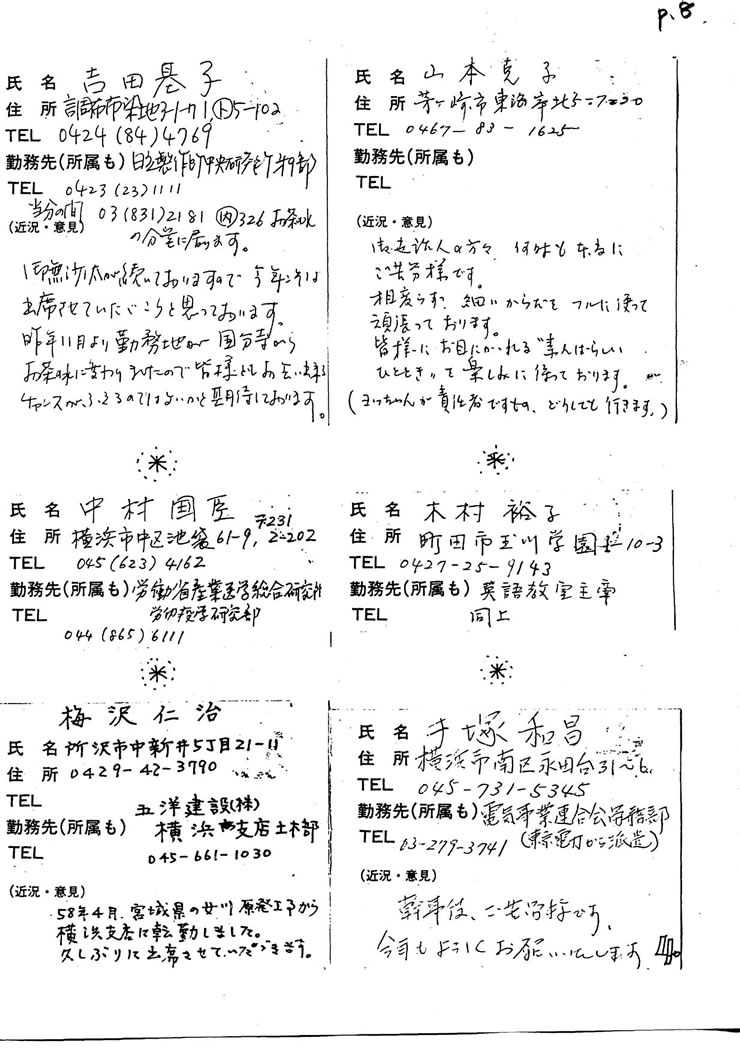 p.8.
氏 名 吉田基子
住 所 調布市染地3-1-71,ト5-102
TEL 0424(84)4769
勤務先(所属も) 日立製作所中央研究所
TEL 0423(23)1111
当分の間 03(831)2181 内326 お茶水
(近況・意見) の分室に居ります。
御無沙汰が続いておりますので今年こそは
出席させていただこうと思っております。
昨年11月より勤務地が国分寺から
お茶味に変わりましたので皆様ともお会い出来る
チャンスがふえるのではないかと期待しております。
氏 名 山本克子
住 所 茅ヶ崎市東海岸北5-7-30
TEL 0467-83-1625
勤務先(所属も)
TEL
(近況・意見)
御世話人の方々 何時も本当に
ご苦労様です。
相変らず、細いからだを フルに使って
頑張っております。
皆様にお目にかかれる"素んばらしい
ひととき"を楽しみに待っております。
(ヨッちゃんが責任者ですもの、どうしても行きます。)
氏 名 中村国臣
〒231
住 所 横浜市中区池袋61-9, 2-202
TEL 045(623)4162
勤務先(所属も) 労働省産業医学総合研究所
TEL 労働疫学研究部
044(865)6111
氏 名 木村裕子
住 所 町田市玉川学園 10-3
TEL 0427-25-9143
勤務先(所属も) 英語教室主宰
TEL 同上
梅沢仁治
氏 名 所沢市中新井5丁目21-11
住 所 0429-42-3790
TEL
五洋建設(株)
勤務先(所属も) 横浜支店土木部
TEL 045-661-1030
(近況・意見)
58年4月、宮城県の女川原発工事から
横浜支店に転勤しました。
久しぶりに出席させていただきます。
氏 名 手塚和昌
住 所 横浜市南区永田台31-6
TEL 045-731-5345
勤務先(所属も) 電気事業連合会 務部
TEL 03-279-3741 (東京電力から派遣)
(近況・意見)
幹事役、ご苦労様です。
今年もよろしくお願いいたします